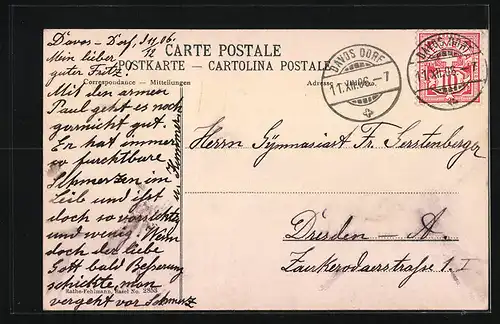 D'avos-Dorf, 11/12.06.
CARTE POSTALE
POSTKARTE – CARTOLINA POSTALE
Correspondance — Mitteilungen
DAVOS DORF
11.XII.06.-7
DAVOS DORF
11.XII.06
Mein lieber
guter Fritz.
Mit den armen
Paul geht es noch
garnicht gut.
Er hat immer
so furchtbare
Schmerzen im
Leib und ißt
doch so vorsichtig
und wenig. Wenn
doch der liebe
Gott bald Besserung
schickte, man
vergeht vor Schmerz
u. Kummer
Herrn Gymnasiast Fr. Gerstenberger.
Dresden – A.
Zinzendorfstraße 1. I
Rathe-Fehlmann, Basel No. 2853